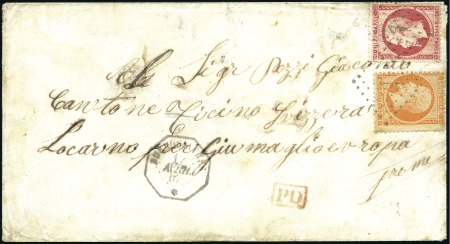 Al Sigr Pozzi Giacomo
Cantone Ticino Svizzera
Locarno per Giumaglio europa
PD